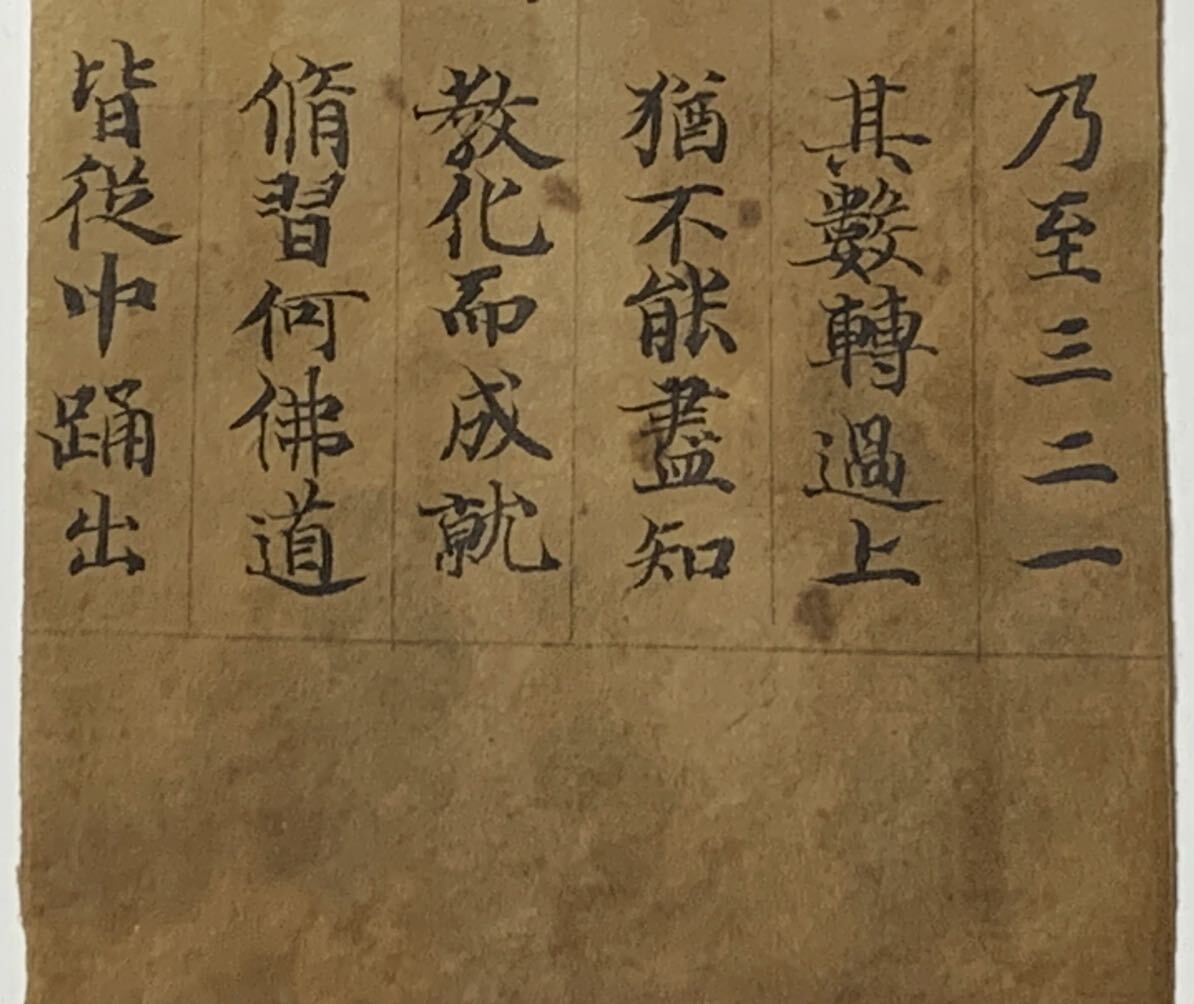 乃至三二一
其數轉過上
猶不能盡知
教化而成就
脩習何佛道
皆從中踊出